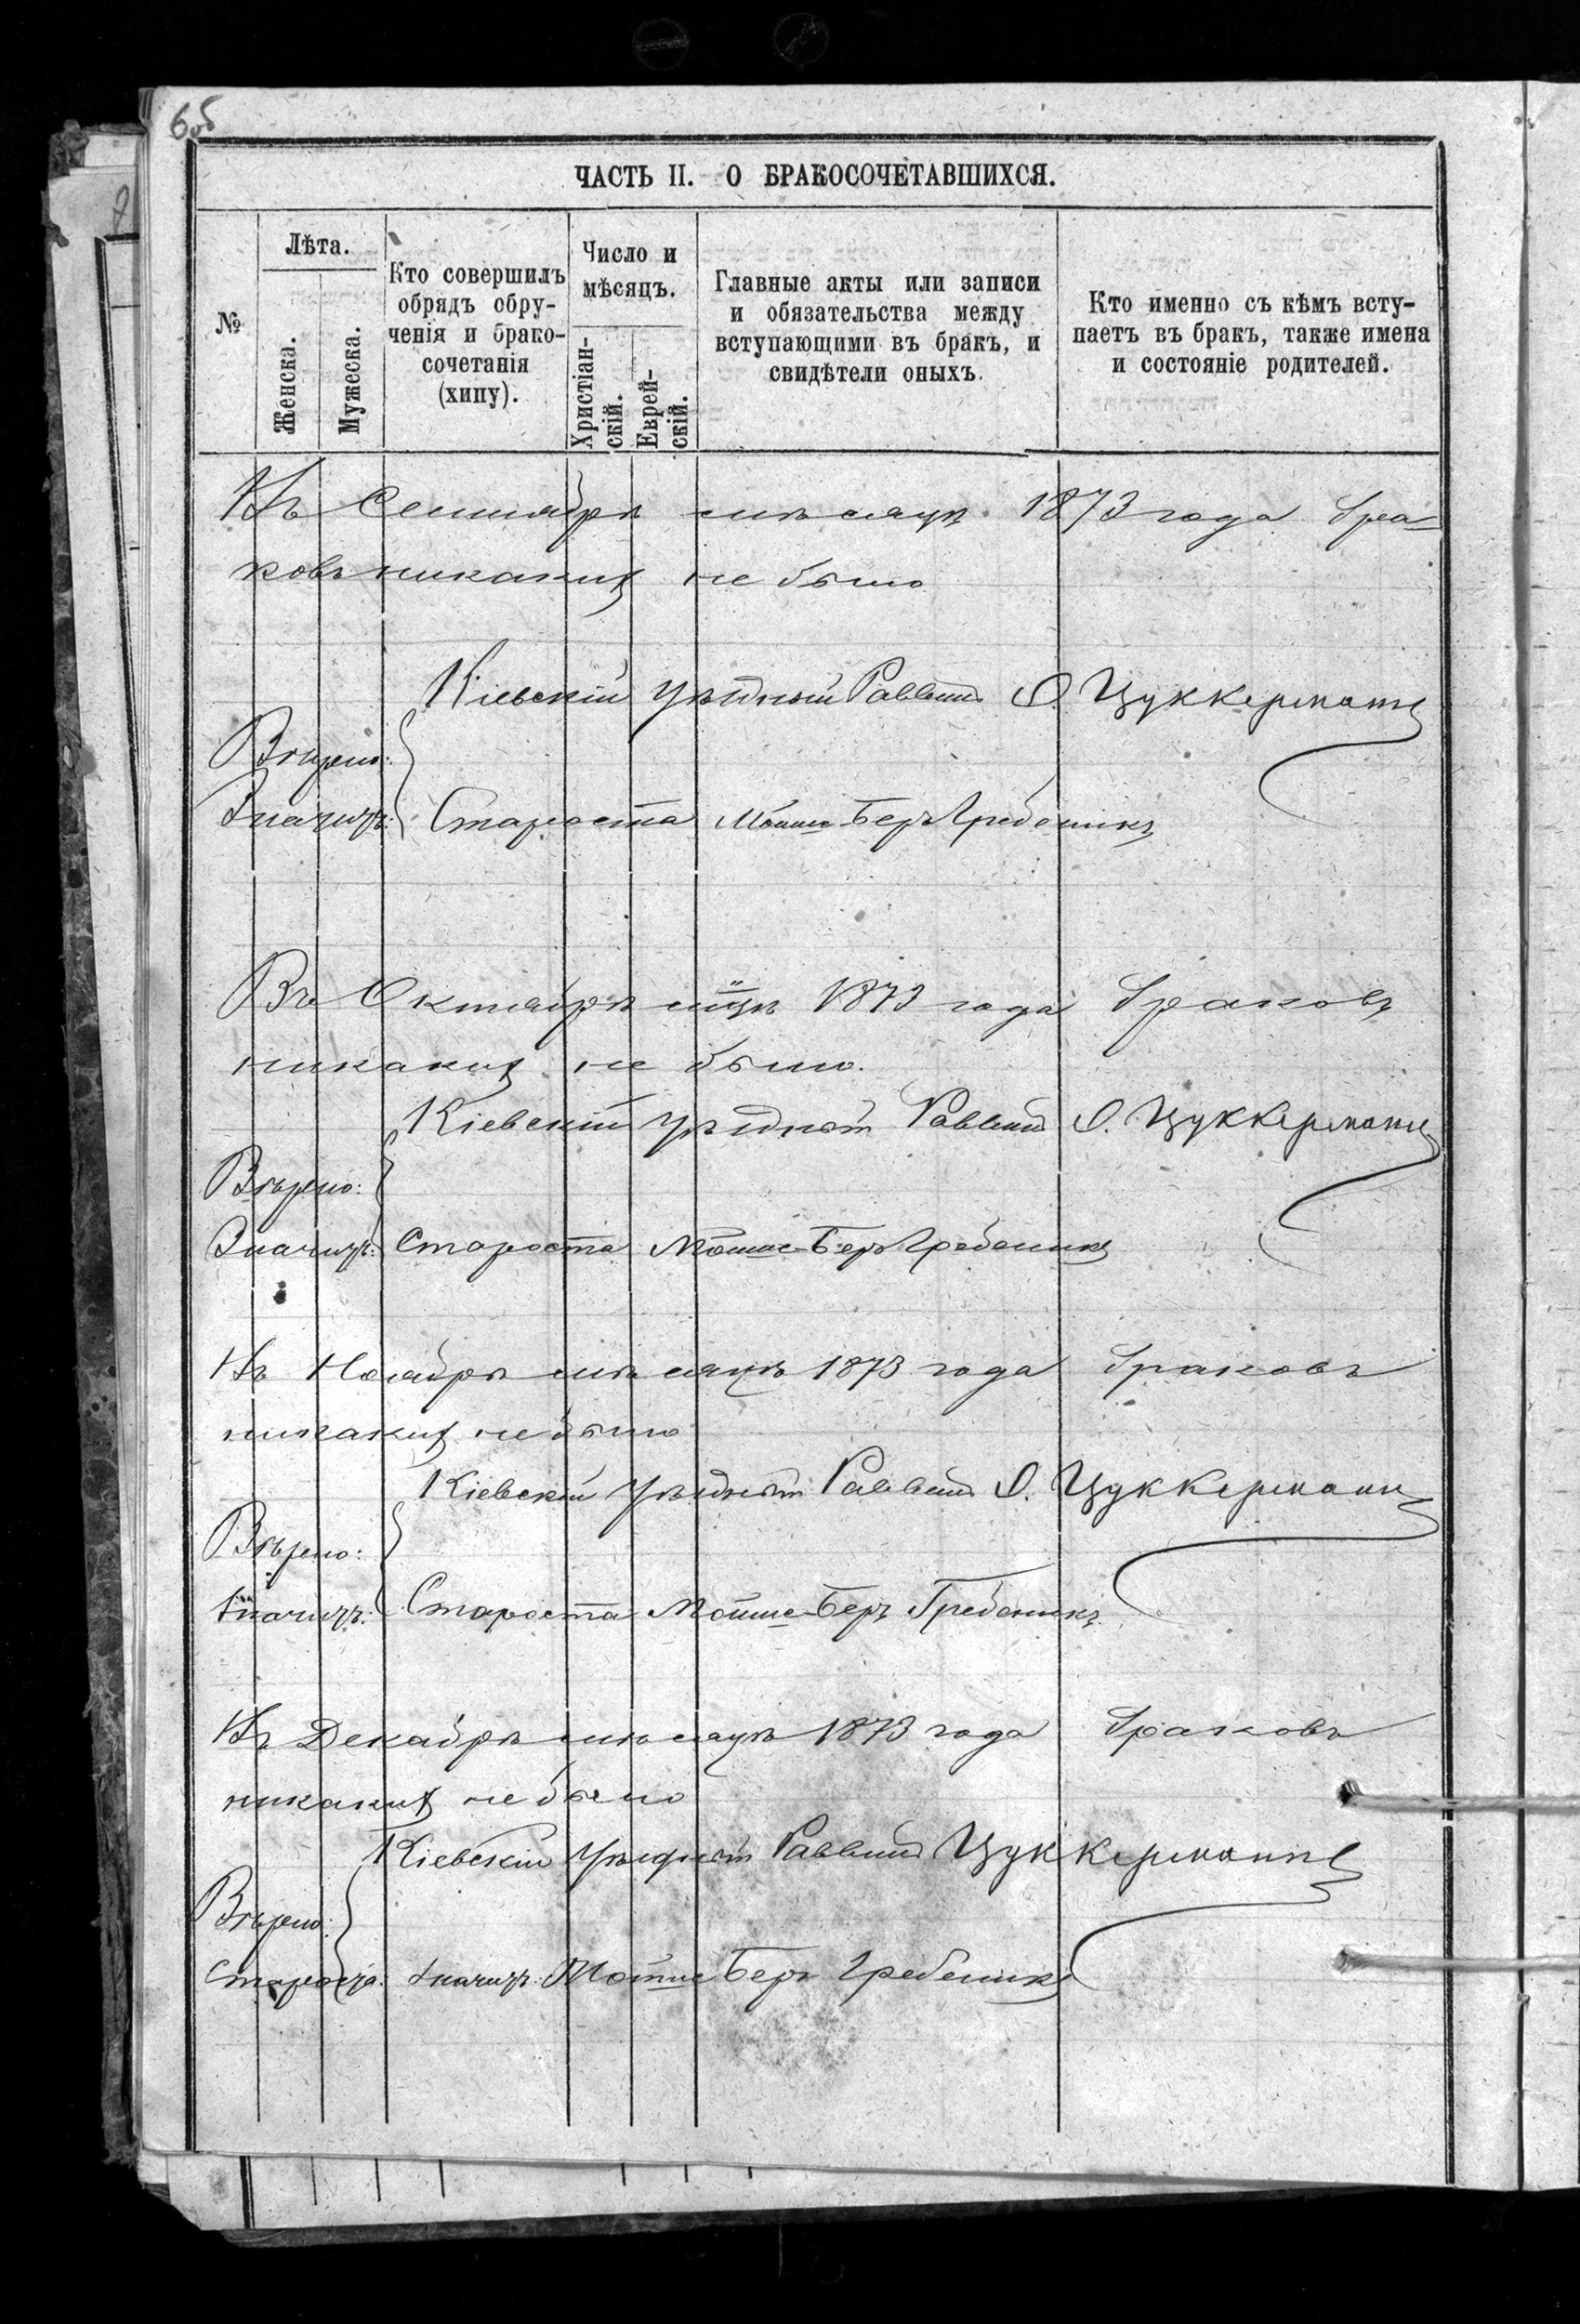 6об
ЧАСТЬ II. О БРАКОСОЧЕТАВШИХСЯ.
№
Лѣта.
Женска.
Мужеска.
Кто совершилъ
обрядъ обру-
ченія и брако-
сочетанія
(хипу).
Число и
мѣсяцъ.
Христіан-
скій.
Еврей-
скій.
Главные акты или записи
и обязательства между
вступающими въ бракъ, и
свидѣтели оныхъ.
Кто именно съ кѣмъ всту-
паетъ въ бракъ, также имена
и состояніе родителей.
Въ Сентябрѣ мѣсяцѣ 1873 года бра-
ковъ никакихъ не было
Кіевскій уѣздный Раввинъ О. Цуккерманъ
Вѣрно:
Староста Мойше Беръ Гребеникъ
Въ Октябрѣ мцѣ 1873 года браковъ
никакихъ не было.
Кіевскій уѣздный Раввинъ О. Цуккерманъ
Вѣрно:
Староста Мойше-Беръ Гребеникъ
Въ Ноябрѣ мѣсяцѣ 1873 года браковъ
никакихъ не было
Кіевскій уѣздный Раввинъ О. Цуккерманъ
Вѣрно:
Староста Мойше-Беръ Гребеникъ
Въ Декабрѣ мѣсяцѣ 1873 года браковъ
никакихъ не было
Кіевскій уѣздный Раввинъ Цуккерманъ
Вѣрно:
Староста Мойше Беръ Гребеникъ